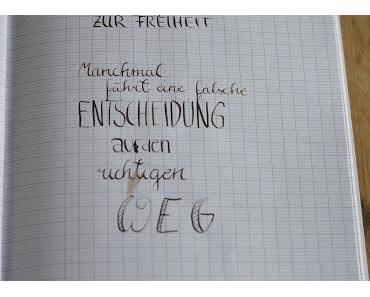 ZUR FREIHEIT
Manchmal
führt eine falsche
ENTSCHEIDUNG
auf den
richtigen
WEG